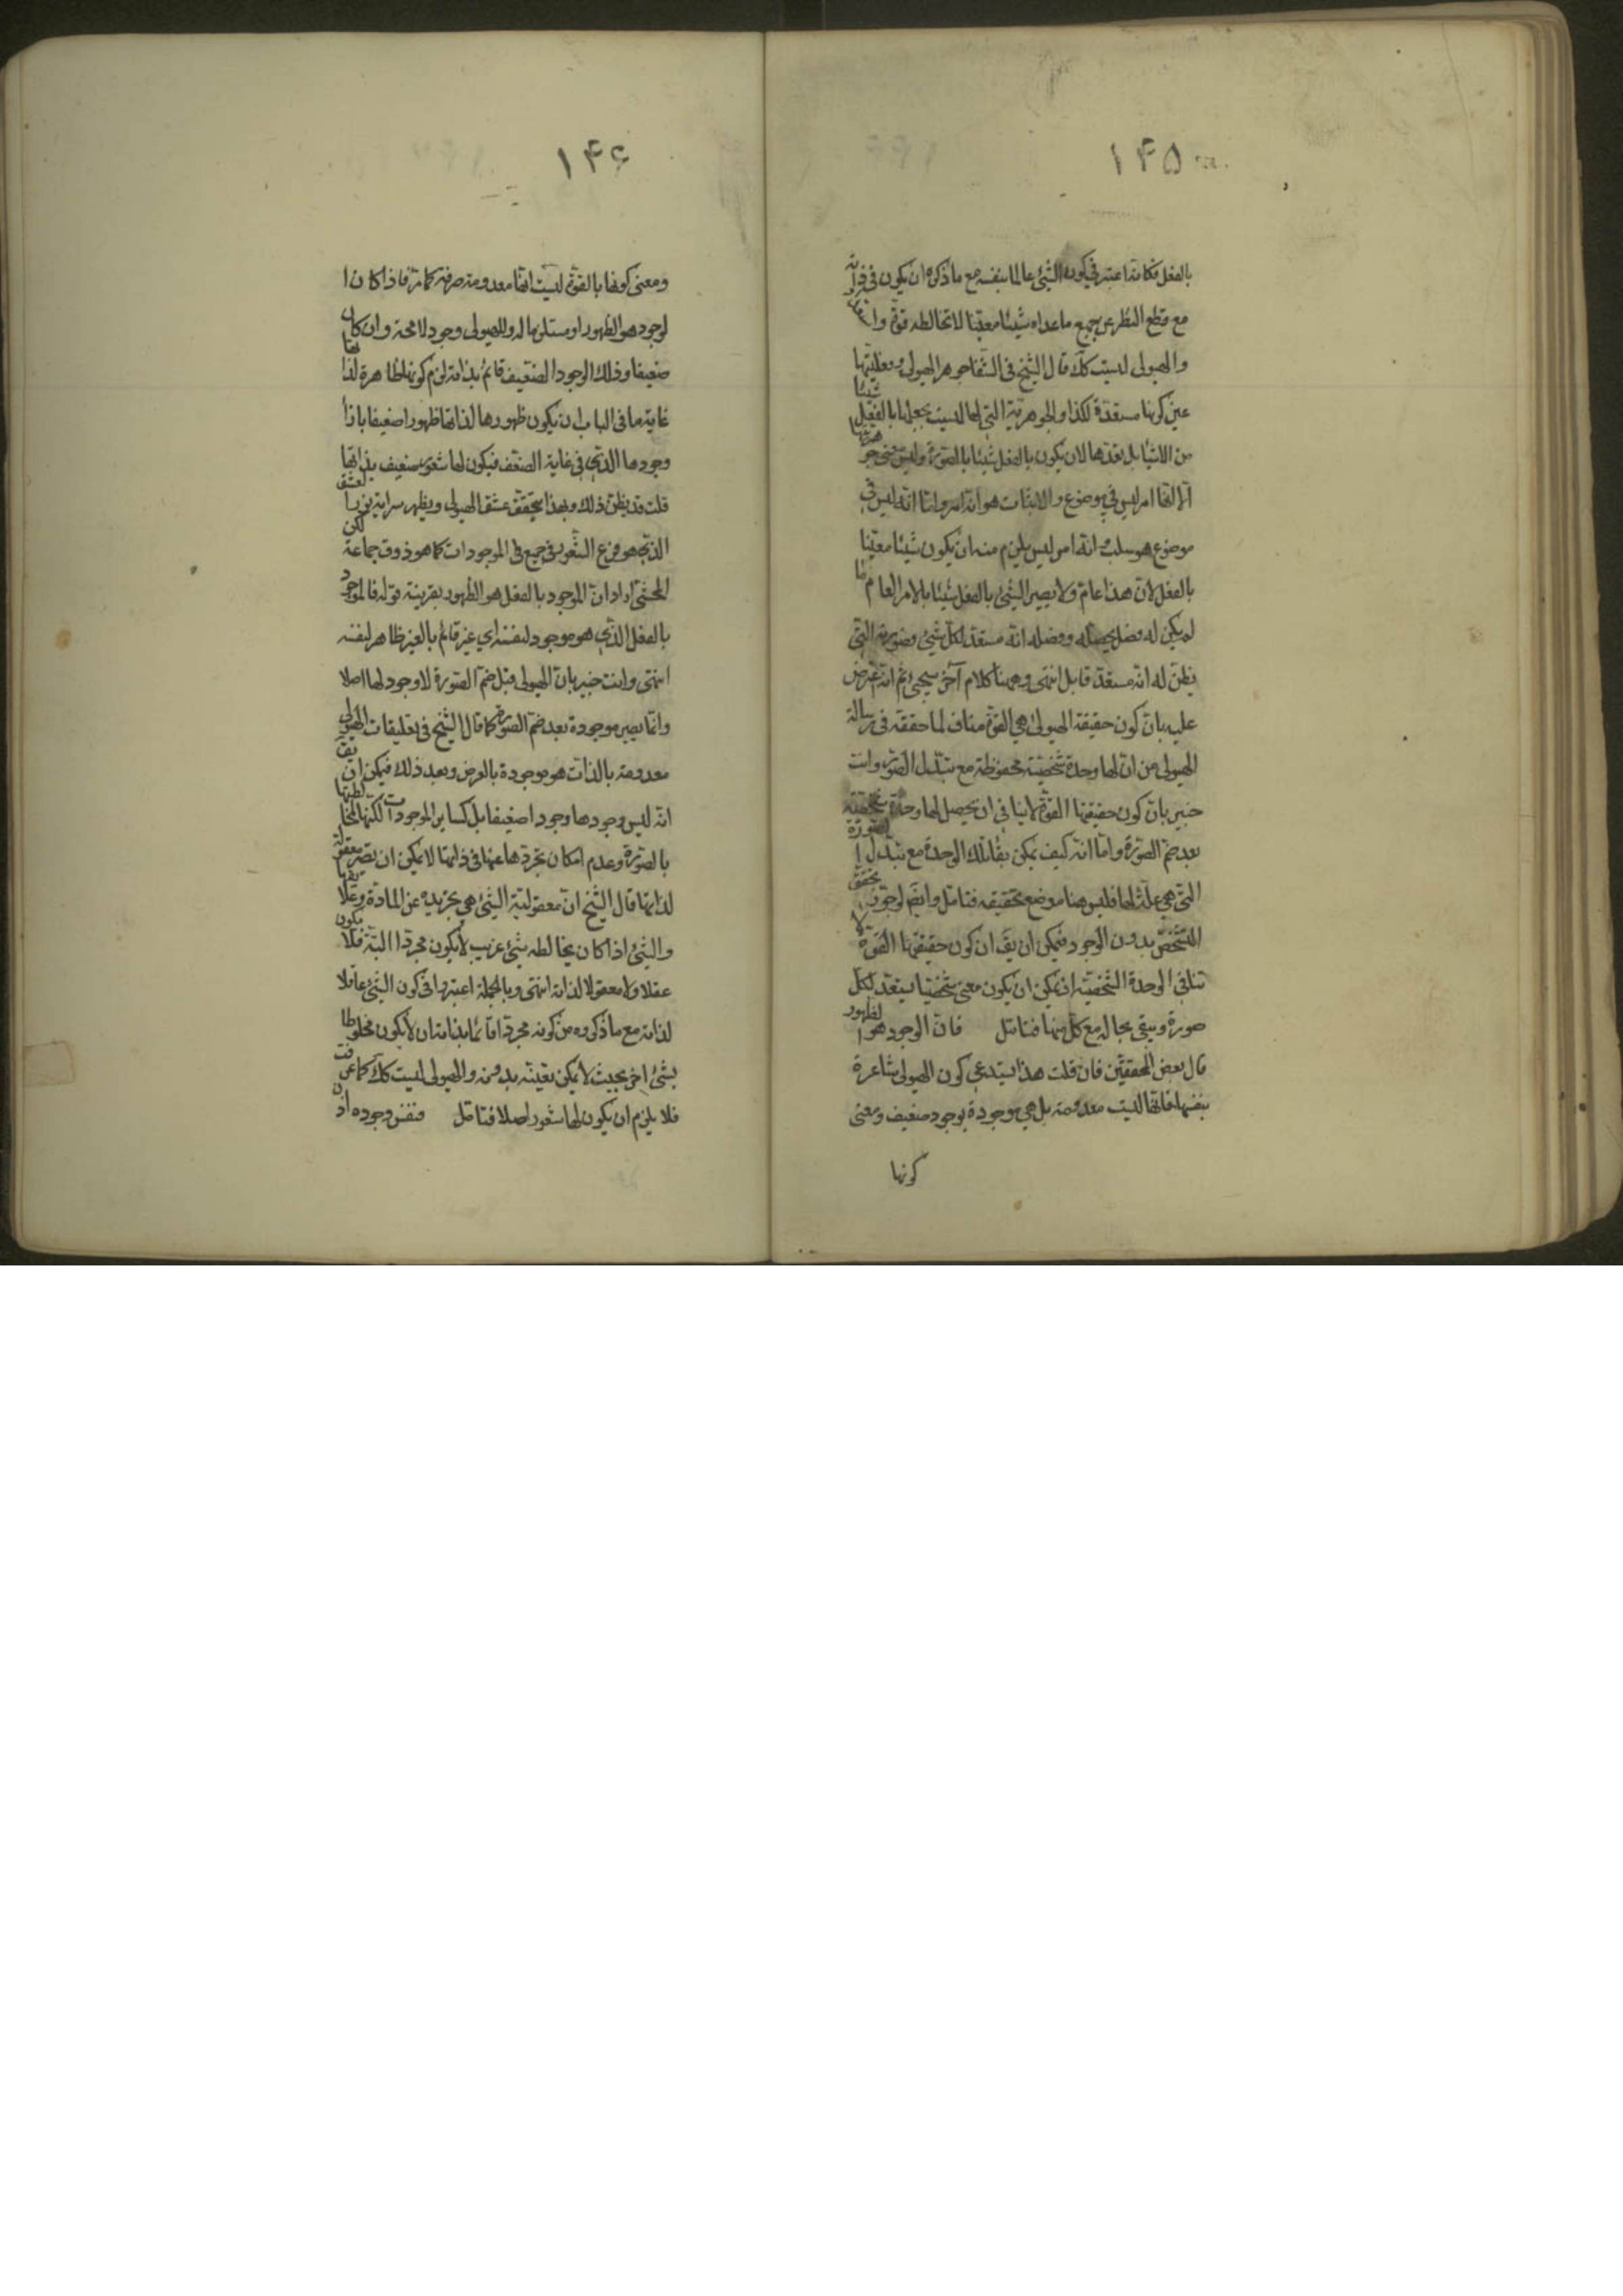 ١۴۵
بالفعل فكانه اعتبر في كون الشئ عالما بنفسه مع ما ذكره ان يكون في ذاته
مع قطع النظر عن جميع ما عداه شيئا معيّنا لا تخالطه قوة
والهيولى ليست كك قال الشيخ في الشفا جوهر الهيولى وفعليتها
عين كونها مستعدة لكذا والجوهرية التي لها ليست بجعلها بالفعل شيئا
من الاشيا بل تعدها لان يكون بالفعل شيئا بالصورة وليس معنى جوهريتها
الا انها امر ليس في موضوع والاثبات هو انه امر واما انه ليس في
موضوع هو سلب وانه امر ليس يلزم منه ان يكون شيئا معيّنا
بالفعل لان هذا عام ولا يصير الشئ بالفعل شيئا بالامر العام ما
لم يكن له فصل يحصله وفصله انه مستعد لكل شئ وصورته التي
يظن له انه مستعد قابل انتهى وههنا كلام آخر سيجئ ثم انه اعترض
عليه بان كون حقيقة الهيولى هي القوة مناف لما حققه في رسالة
الهيولى من ان لها وحدة شخصية محفوظة مع تبدل الصور وانت
خبير بان كون حقيقتها القوة لا ينافي ان يحصل لها وحدة شخصية
بعد ضم الصورة واما انه كيف يمكن بقا تلك الوحدة مع تبدل الصورة
التي هي علة لها فليس هنا موضع تحقيقه فتامل وايضا لو جوز تحقق
التشخص بدون الوجود فيمكن ان يق ان كون حقيقتها القوة لا
تنافي الوحدة الشخصية اذ يمكن ان يكون معنى شخصيا يستعد لكل
صورة ويبقى بحاله مع كل منها فتامل فان الوجود هو الظهور
قال بعض المحققين فان قلت هذا يستدعي كون الهيولى شاعرة
بنفسها فانها ليست معدومة بل هي موجودة بوجود ضعيف ومعنى
كونها
١۴۶
ومعنى كونها بالقوة ليست انها معدومة صرفة كما مر فاذا كان ا
لوجود هو الظهور او مستلزما له وللهيولى وجود لا محة وان كان
ضعيفا وذلك الوجود الضعيف قائم بذاته لزم كونها ظاهرة لذاتها
غاية ما في الباب ان يكون ظهورها لذاتها ظهورا ضعيفا بازا
وجودها الذي في غاية الضعف فيكون لها شعور ضعيف بذاتها
قلت قد يظن ذلك وبهذا يتحقق عشق الهيولى ويظهر سراية نور العشق
الذي هو فرع الشعور في جميع الموجودات كما هو ذوق جماعة لكن
المحشي اراد ان الموجود بالفعل هو الظهور بقرينة قوله فالموجود
بالفعل الذي هو موجود لنفسه اي غير قائم بالغير ظاهر لنفسه
انتهى وانت خبير بان الهيولى قبل ضم الصورة لا وجود لها اصلا
وانما يصير موجودة بعد ضم الصورة كما قال الشيخ في تعليقات الهيولى
معدومة بالذات هو موجودة بالعرض وبعد ذلك فيمكن ان يق
انه ليس وجودها وجودا ضعيفا بل كساير الموجودات لكنها لمخالطتها
بالصورة وعدم امكان تجردها عنها في ذاتها لا يمكن ان تصير معقولة
لذاتها قال الشيخ ان معقولية الشئ هي تجريده عن المادة وعلايقها
والشئ اذا كان يخالطه شئ غريب لا يكون مجردا البتة فلا يكون
عقلا ولا معقولا لذاته انتهى وبالجملة اعتبروا في كون الشئ عاقلا
لذاته مع ما ذكروه من كونه مجردا قائما بذاته ان لا يكون مخلوطا
بشئ اخر بحيث لا يمكن تعيّنه بدونه والهيولى ليست كك كما عرفت
فلا يلزم ان يكون لها شعور اصلا فتامل فنفس وجوده اذن